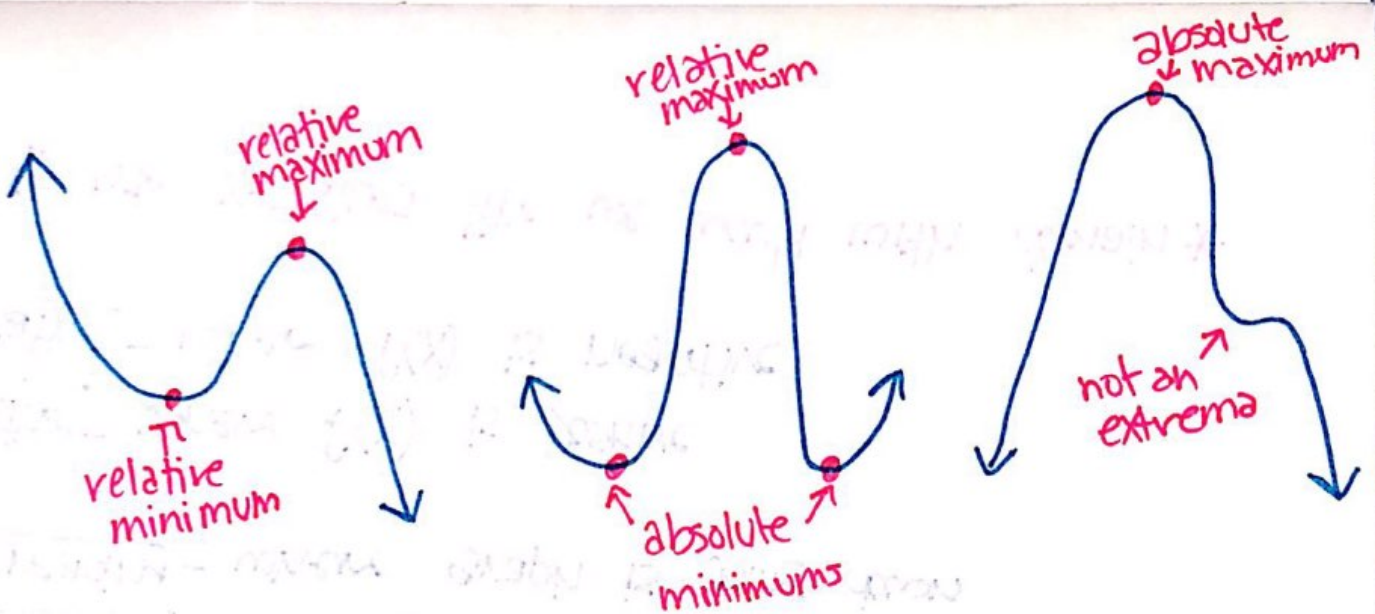 relative
maximum
relative
minimum
relative
maximum
absolute
minimums
absolute
maximum
not an
extrema